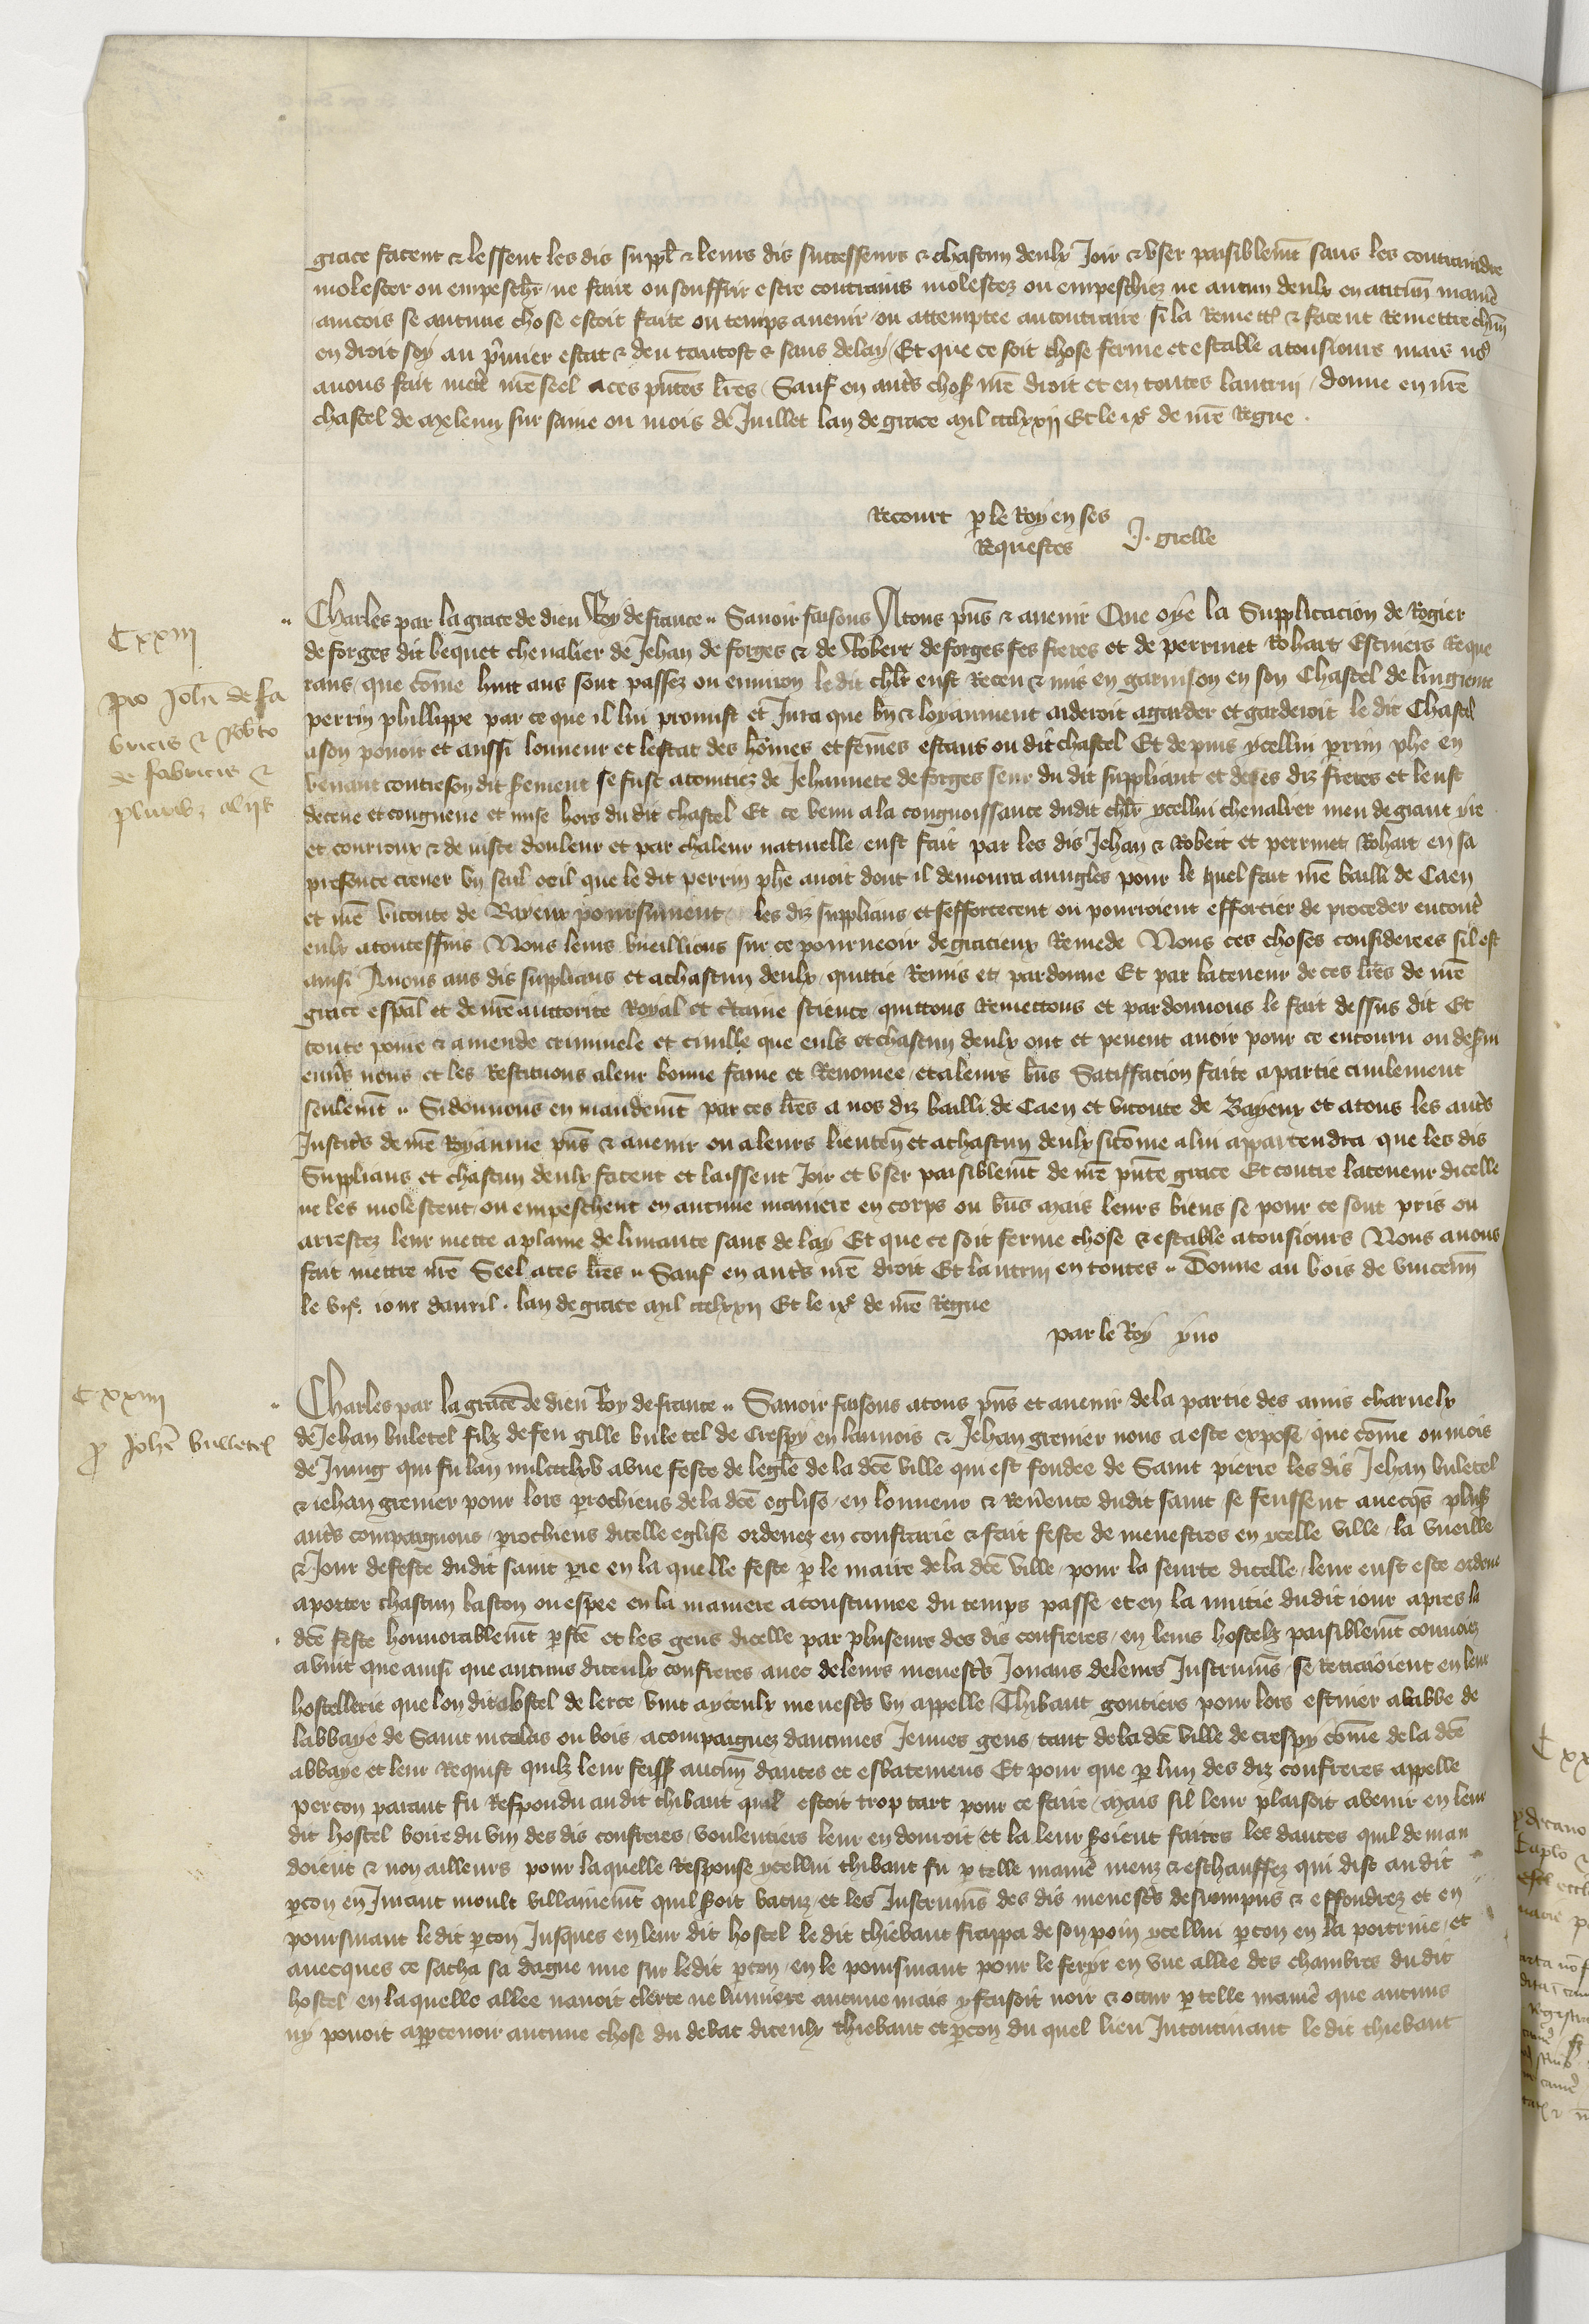 grace facent & lessent les dis suppl & leurs dis successeurs & chascun deulx Joir & vser paisiblemt sans les contraindre
molester ou empeschr ne faire ou souffrir estre contrains molestez ou empeschiez ne aucun deulx en aucun maniē
aincois se aucune chose estoit faite ou temps auenir ou attemptee au contraire si la Remett & facent Remettre chūn
en droit soy au pmier estat & deu tantost & sans delay Et que ce soit chose ferme et estable a tousiours mais no9
auons fait mettre nrē seel a ces pntes lrēs Sauf en autrs chos nrē droit et en toutes lautrui / donne en nrē
chastel de meleun sur saine ou mois de Juillet lan de grace mil ccclxxij Et le ixe de nrē Regne .
Recourt p le Roy en ses
Requestes J. grelle
Cxxiij
pro Joh de fa
bricis & Robto
de fabricis &
plurib9 alijs
Charles par la grace de dieu Roy de france .. Sauoir faisons A tous pns & auenir Que oye la Supplicacion de Rogier
de forges dit bequet cheualier de Jehan de forges & de Robert de forges ses freres et de perrinet Rohart Escuiers Reque
rans que cōme huit ans sont passez ou enuiron le dit chlr eust Receu & mis en garnison en son Chastel de lingieure
perrin phillippe par ce que il lui promist et Jura que bn & loyaument aideroit a garder et garderoit le dit Chastel
a son pouoir et aussi lonneur et lestat des hōmes et femēs estans ou dit chastel Et depuis ycellui perrin phe en
venant contre son dit serment se fust acointiez de Jehannete de forges seur du dit suppliant et de ses diz freres et leust
deceue et congneue et mise hors du dit chastel Et ce venu a la congnoissance dudit chlr ycellui cheualier meu de grant yre
et courroux & de iuste douleur et par chaleur naturelle eust fait par les dis Jehan & Robert et perrinet Rohart en sa
presence creuer vn seul oeil que le dit perrin phe auoit dont il demoura auugles pour le quel fait nrē bailli de Caen
et nrē viconte de Bayeux poursuiuent les diz supplians et sefforcecent ou pourroient efforcier de proceder encontr
eulx a toutes fins Nous leurs vueillions sur ce pourueoir de gracieux Remede Nous ces choses considerees sil est
ainsi Auons aus dis supplians et a chascun deulx quittie Remis et pardonne Et par la teneur de ces lrēs de nrē
grace espal et de nrē auctorite Royal et ctaine science quittons Remettons et pardonnons le fait dessus dit Et
toute poine & amende criminele et ciuille que euls et chascun deulx ont et peuent auoir pour ce encouru ou deseru
enuers nous et les Restituons a leur bonne fame et Renomee et a leurs bns Satiffacion faite a partie ciuilement
seulemt .. Si donnons en mandemt par ces lrēs a nos diz bailli de Caen et viconte de Bayeux et a tous les autrs
Justicrs de nrē Royaume pns & auenir ou a leurs lieuten et a chascun deulx si cōme a lui appartendra que les dis
Supplians et chascun deulx facent et laissent Joir et vser paisiblemt de nrē pnte grace Et contre la teneur dicelle
ne les molestent ou empeschent en aucune maniere en corps ou bns Mais leurs biens se pour ce sont pris ou
arrestez leur mette a plaine deliurance sans delay Et que ce soit ferme chose & estable a tousiours Nous auons
fait mettre nrē Seel a ces lrēs .. Sauf en autrs nrē droit Et lautrui en toutes .. Donne au bois de vincenn
le vje iour dauril . lan de grace mil ccclxxij Et le ixe de nrē Regne
par le Roy yuo
Cxxiiij
p Johē bulletel
Charles par la grace de dieu Roy de france .. Sauoir faisons a tous pns et auenir de la partie des amis charnelx
de Jehan buletel filz de feu gille buletel de Crespy en lannois & Jehan grenier nous a este expose que cōme ou mois
de Juing qui fu lan mil ccclxv a vne feste de legle de la dce ville qui est fondee de Saint pierre les dis Jehan buletel
& iehan grenier pour lors prochiens de la dce eglise en lonneur & Reuence dudit saint se feussent auecqs plus
autrs compaignons prochiens dicelle eglise ordenez en confrarie & fait feste de menestres en ycelle ville la vueille
& Jour de feste dudit saint pre en la quelle feste p le maire de la dce ville pour la seurte dicelle leur eust este ordene
a porter chascun baston ou espee en la maniere acoustumee du temps passe et en la nuitie dudit iour apres la
dce feste honnorablemt pfte et les gens dicelle par pluseurs des dis confreres en leurs hostelz paisiblemt conuoiez
auint que ainsi que aucuns diceulx confreres auec de leurs menestrs Jouans de leurs Instrumes se retraioient en leur
hostellerie que lon dit a lostel de lerce vint ayceulx menestrs vn appelle Thibaut goutiers pour lors escuier a labbe de
labbaye de Saint nicolas ou bois acompaignez daucunes Jeunes gens tant de la dce ville de crespy cōme de la dce
abbaye et leur Requist quilz leur feiss aucun dances et esbatemens Et pour que p lun des diz confreres appelle
percon parant fu Respondu audit thibaut quil estoit trop tart pour ce faire Mais sil leur plaisoit a venir en leur
dit hostel boire du vin des dis confreres voulentiers leur en donroit et la leur soient faites les dances quil deman
doient & non ailleurs pour laquelle Response ycellui thibaut fu p telle manie meuz & eschauffez qui dist au dit
pcon en Jurant moult villainemt quil soit batuz et les Instrumes des dis menestrs desrompus & effondrez et en
poursuiant le dit pcon Jusques en leur dit hostel le dit thiebaut frappa de son poin ycellui pcon en la poitrine et
auecques ce sacha sa dague nue sur ledit pcon en le poursuiant pour le feryr en vne allee des chambres dudit
hostel en laquelle allee nauoit clerte ne lumiere aucune mais y faisoit noir & occur p telle manie que aucuns
ny pouoit appceuoir aucune chose du debat diceulx thiebaut et pcon du quel lieu Incontinant le dit thiebaut